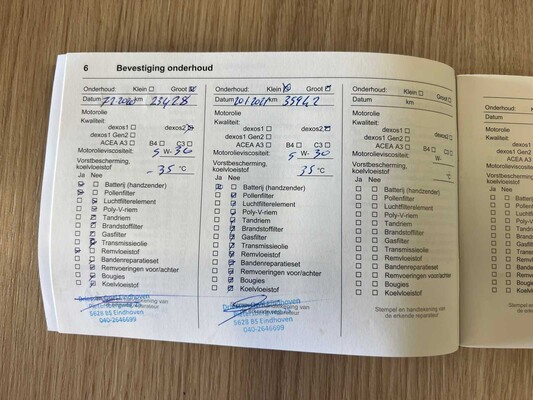 6 Bevestiging onderhoud
Onderhoud: Klein Groot
Datum km 23428
Motorolie
Kwaliteit:
dexos1 dexos2
dexos1 Gen2
ACEA A3 B4 C3
Motorolieviscositeit: 5 W- 30
Vorstbescherming,
koelvloeistof -35 °C
Ja Nee
Batterij (handzender)
Pollenfilter
Luchtfilterelement
Poly-V-riem
Tandriem
Brandstoffilter
Gasfilter
Transmissieolie
Remvloeistof
Bandenreparatieset
Remvoeringen voor/achter
Bougies
Koelvloeistof
Eindhoven
5628 BS Eindhoven
040-2646699
Onderhoud: Klein Groot
Datum km 35942
Motorolie
Kwaliteit:
dexos1 dexos2
dexos1 Gen2
ACEA A3 B4 C3
Motorolieviscositeit: 5 W- 30
Vorstbescherming,
koelvloeistof 35 °C
Ja Nee
Batterij (handzender)
Pollenfilter
Luchtfilterelement
Poly-V-riem
Tandriem
Brandstoffilter
Gasfilter
Transmissieolie
Remvloeistof
Bandenreparatieset
Remvoeringen voor/achter
Bougies
Koelvloeistof
Eindhoven
5628 BS Eindhoven
040-2646699
Onderhoud: Klein Groot
Datum km
Motorolie
Kwaliteit:
dexos1 dexos2
dexos1 Gen2
ACEA A3 B4 C3
Motorolieviscositeit: W-
Vorstbescherming,
koelvloeistof °C
Ja Nee
Batterij (handzender)
Pollenfilter
Luchtfilterelement
Poly-V-riem
Tandriem
Brandstoffilter
Gasfilter
Transmissieolie
Remvloeistof
Bandenreparatieset
Remvoeringen voor/achter
Bougies
Koelvloeistof
Stempel en handtekening van
de erkende reparateur
Onderhoud:
Datum
Motorolie
Kwaliteit:
Ja Nee